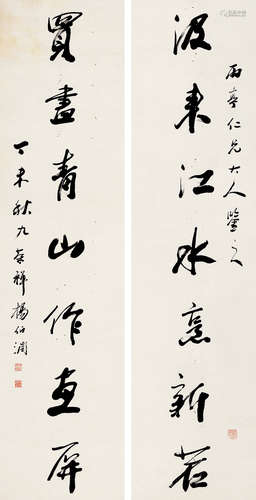 雨春仁兄大人鑒之
汲來江水烹新茗
買盡青山作畫屏
丁未秋九 楊伯潤